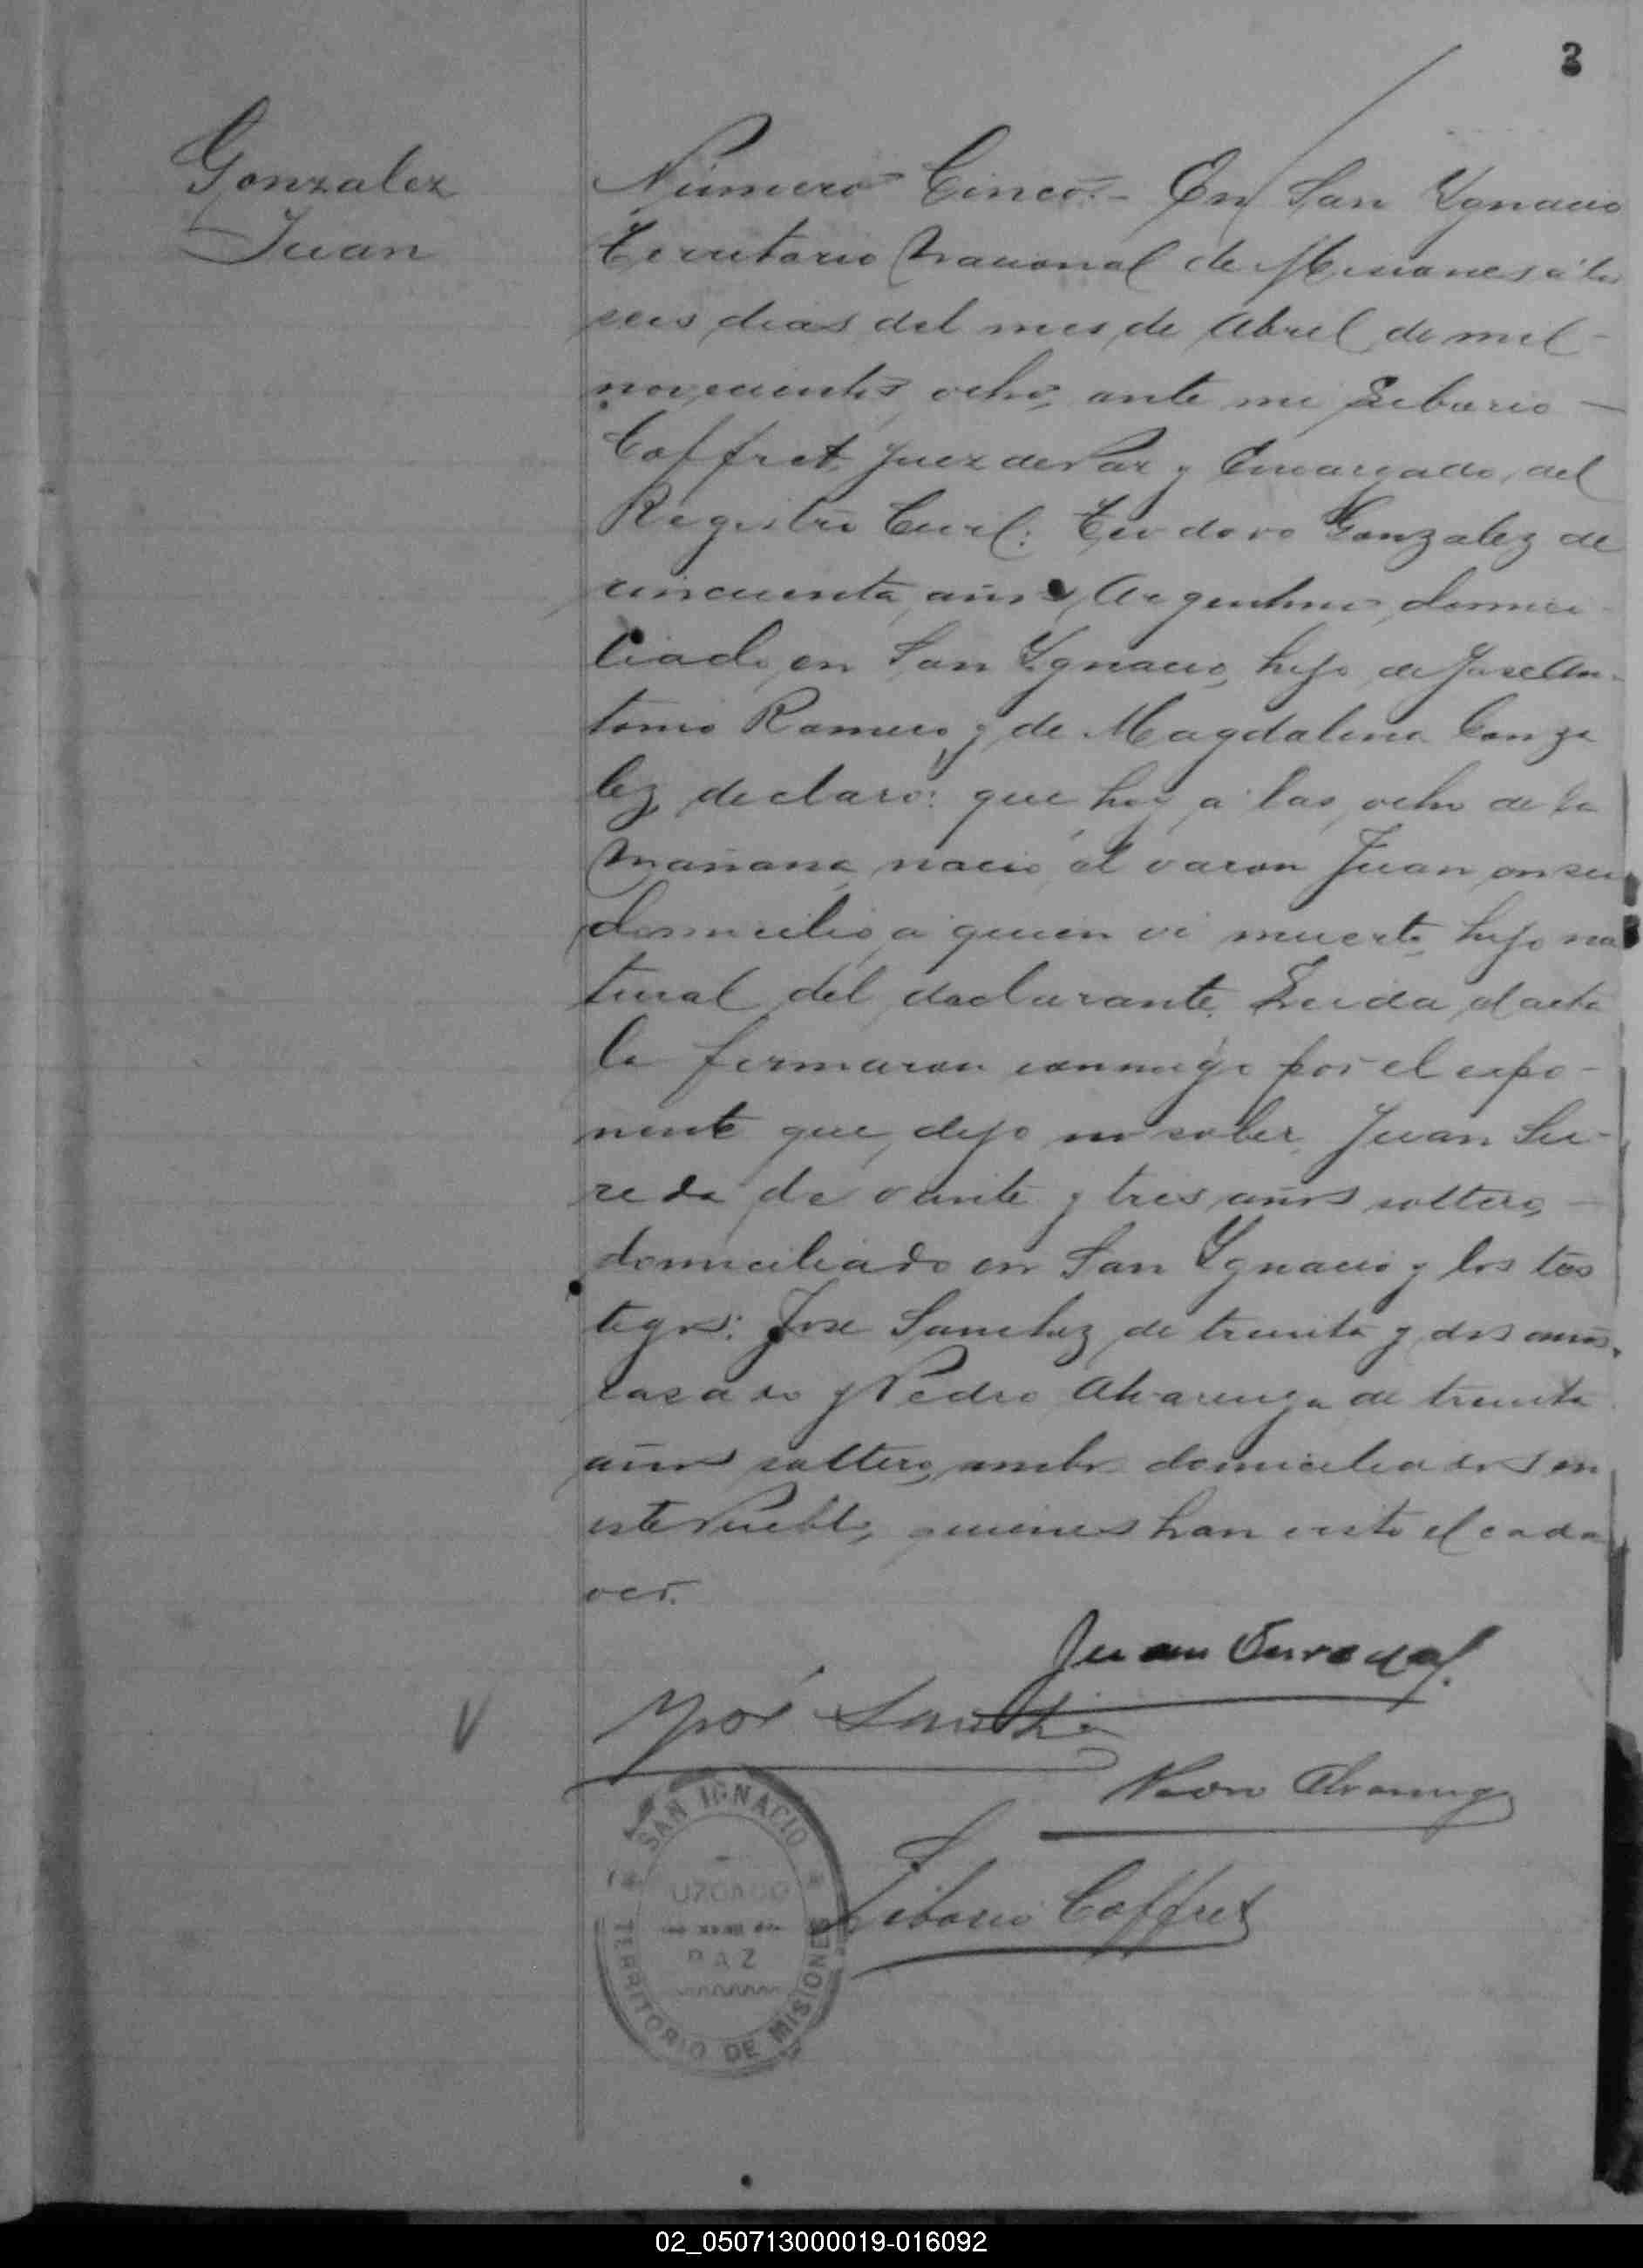 3
Gonzalez
Juan
Número Cinco.- En San Ygnacio
Territorio Nacional de Misiones á los
seis dias del mes de Abril de mil
novecientos ocho, ante mi Liborio
Coffret, Juez de Paz y Encargado del
Registro Civil: Teodoro Gonzalez de
cincuenta años, Argentino, domici-
liado en San Ygnacio, hijo de José An-
tonio Romero y de Magdalena Gonza
lez, declaró: que hoy á las ocho de la
mañana nació el varon Juan en su
domicilio, a quien vi muerto, hijo na
tural del declarante. Leida el acta
la firmaron conmigo por el expo-
nente que dijo no saber, Juan Su-
reda de veinte y tres años soltero,
domiciliado en San Ygnacio y los tes
tigos: José Sanchez de treinta y dos años,
casado y Pedro Alvarenga de treinta
años soltero, ambos domiciliados en
este Pueblo, quienes han visto el cada
ver.
Juan Sureda
José Sanchez
Pedro Alvarenga
Liborio Coffret
SAN IGNACIO
UZGADO
PAZ
TERRITORIO DE MISIONES
02_050713000019-016092